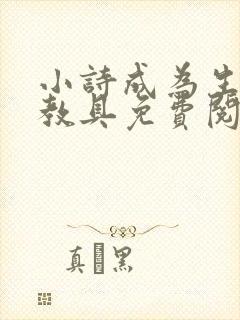 小詩成為生
教具免費閱
真 黑